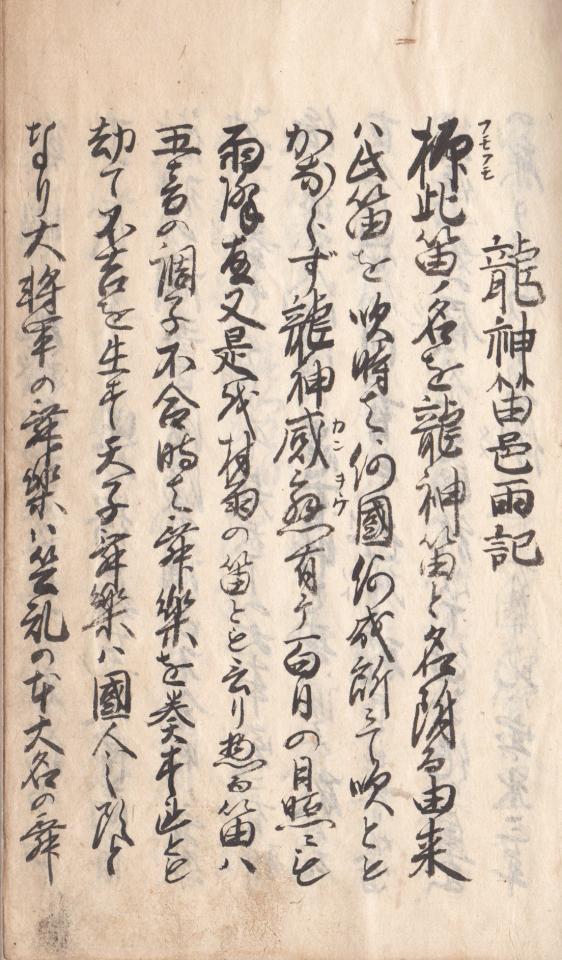 龍神笛邑雨記
フモフモ
抑此笛ノ名を龍神笛と名附る由来
ハ此笛を吹時ハ何國何成所ニて吹とも
かならず龍神感應有テ百日の日照ニも
カンヲウ
雨降直又是の笛とも云り惣而笛ハ
五音の調子不合時ハ舞樂を奏す共
却て不吉を生す天子舞樂ハ國人之
なり大将軍の舞樂ハ礼の大名の舞